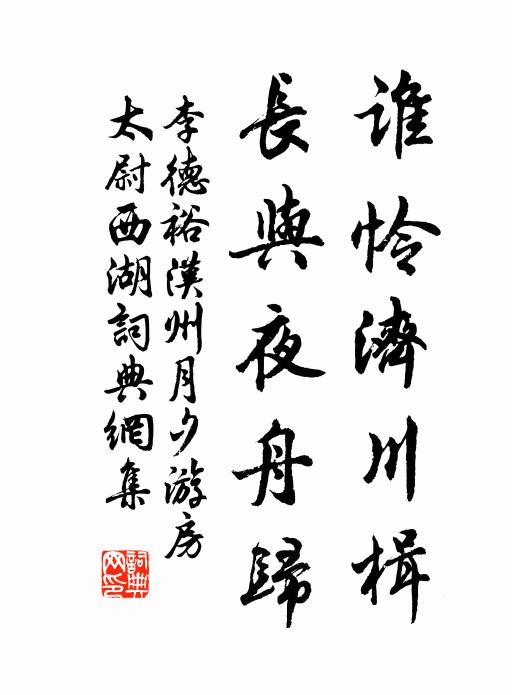 誰憐濟川楫
長與夜舟歸
李德裕漢州月夕游房
太尉西湖詞典網集
詞典
网印